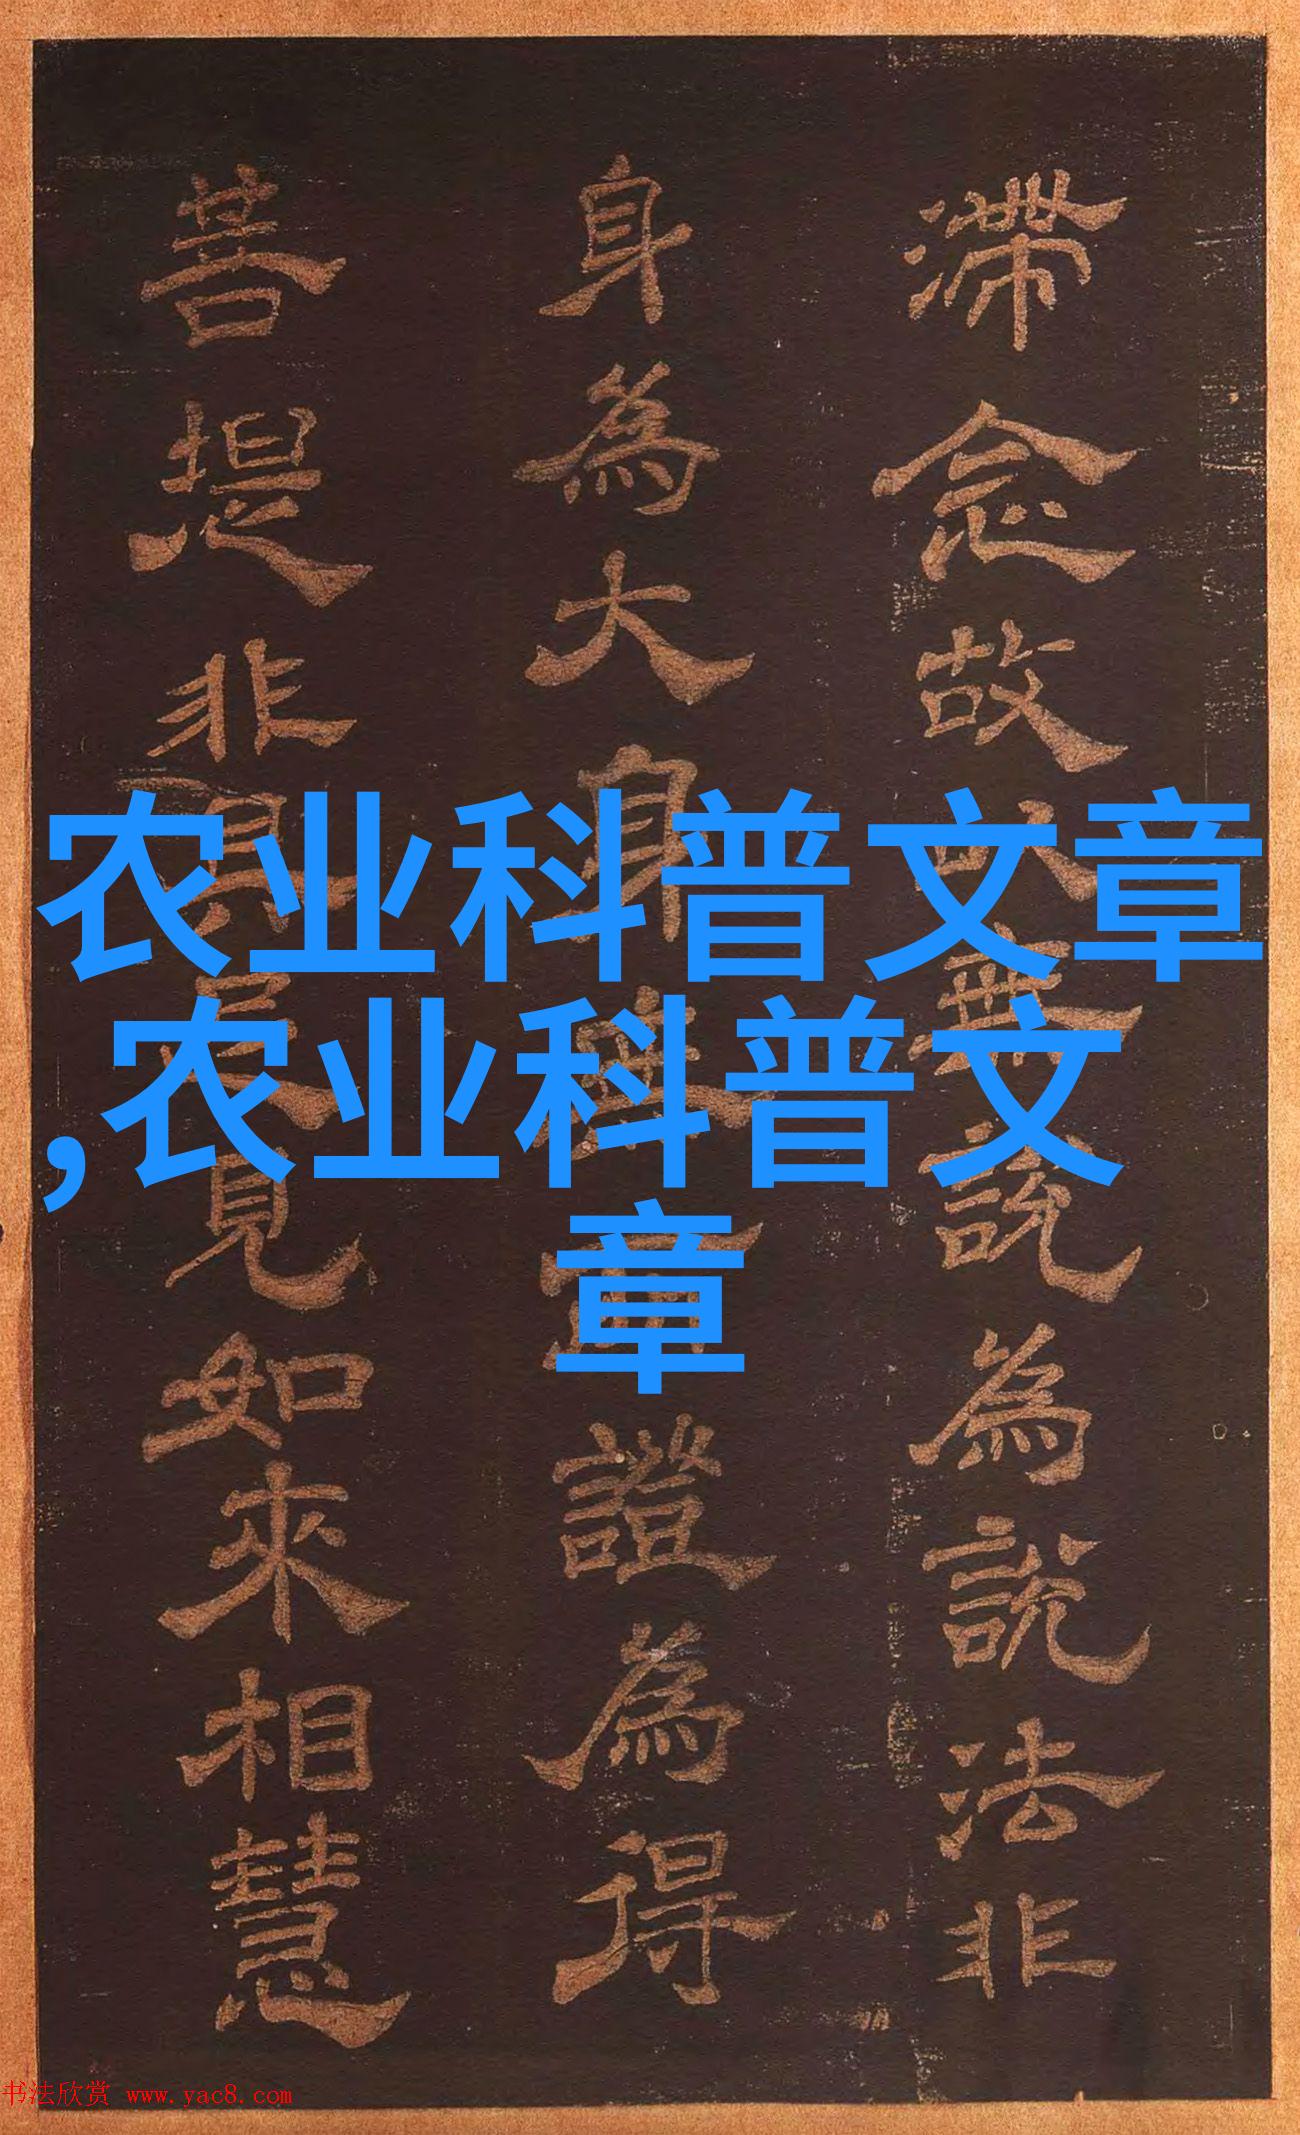 滯念故無說為說法非
身為大身證為得
菩提非見如來相慧
农业科普文章
,农业科普文
章
书法欣赏 www.yac8.com